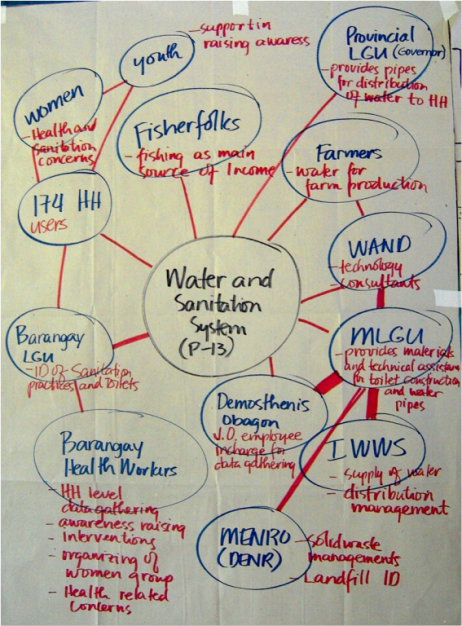 youth
- support in
raising awaress
Provincial
LGU (Governor)
- provides pipes
for distribution
of water to HH
women
- Health and
sanitation
concerns
Fisherfolks
- fishing as main
source of Income
Farmers
- water for
farm production
174 HH
users
WAND
- technology
- consultants
Water and
Sanitation
System
(P-13)
Barangay
LGU
- ID of Sanitation
practices and toilets
MLGU
- provides materials
and technical assistance
for toilet construction
and water
pipes
Demosthenis
Obagon
J.O. employee
incharge for
data gathering
IWWS
- supply of water
- distribution
management
Barangay
Health Workers
- HH level
data gathering
- awareness raising
- Interventions
- organizing of
women group
- Health related
concerns
MENRO
(DENR)
- solid waste
managements
- Landfill ID